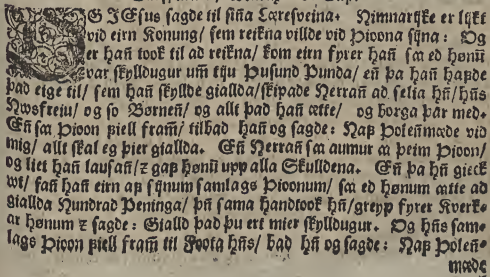 OG JEsus sagde til sijna Læresveina. Himnarijke er lijkt
vid eirn Konung/ sem reikna villde vid Þioona sijna: Og
er hañ took til ad reikna/ kom eirn fyrer hañ sa ed hønũ
var skylldugur um tiju Þusund Punda/ eñ þa hañ hafde
þad eige til/ sem hañ skyllde gialda/ skipade Herrañ ad selia hñ/ hñs
Hwsfreiu/ og so Børneñ/ og allt þad hañ ætte/ og borga þar med.
Eñ sa Þioon fiell fram/ tilbad hañ og sagde: Haf Þoleñmæde vid
mig/ allt skal eg þier giallda. Eñ Herrañ sa aumur a þeim Þioon/
og liet hañ lausañ/ ꝛ gaf hønũ upp alla Skulldena. Eñ þa hñ gieck
wt/ fañ hañ eirn af sijnum samlags Þioonum/ sa ed hønum ætte ad
giallda Hundrad Peninga/ þñ sama handtook hñ/ greyp fyrer Kverk-
ar hønum ꝛ sagde: Giallð þad þu ert mier skylldugur. Og hñs sam-
lags Þioon fiell fram til Foota hñs/ bad hñ og sagde: Haf Þoleñ-
mæde